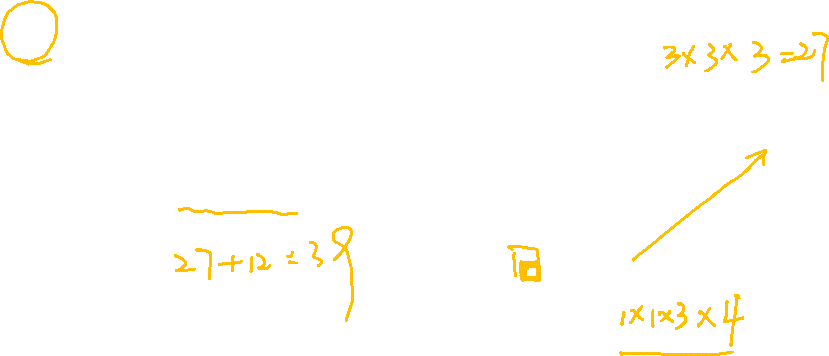 3×3×3=27
27+12=39
1×1×3×4